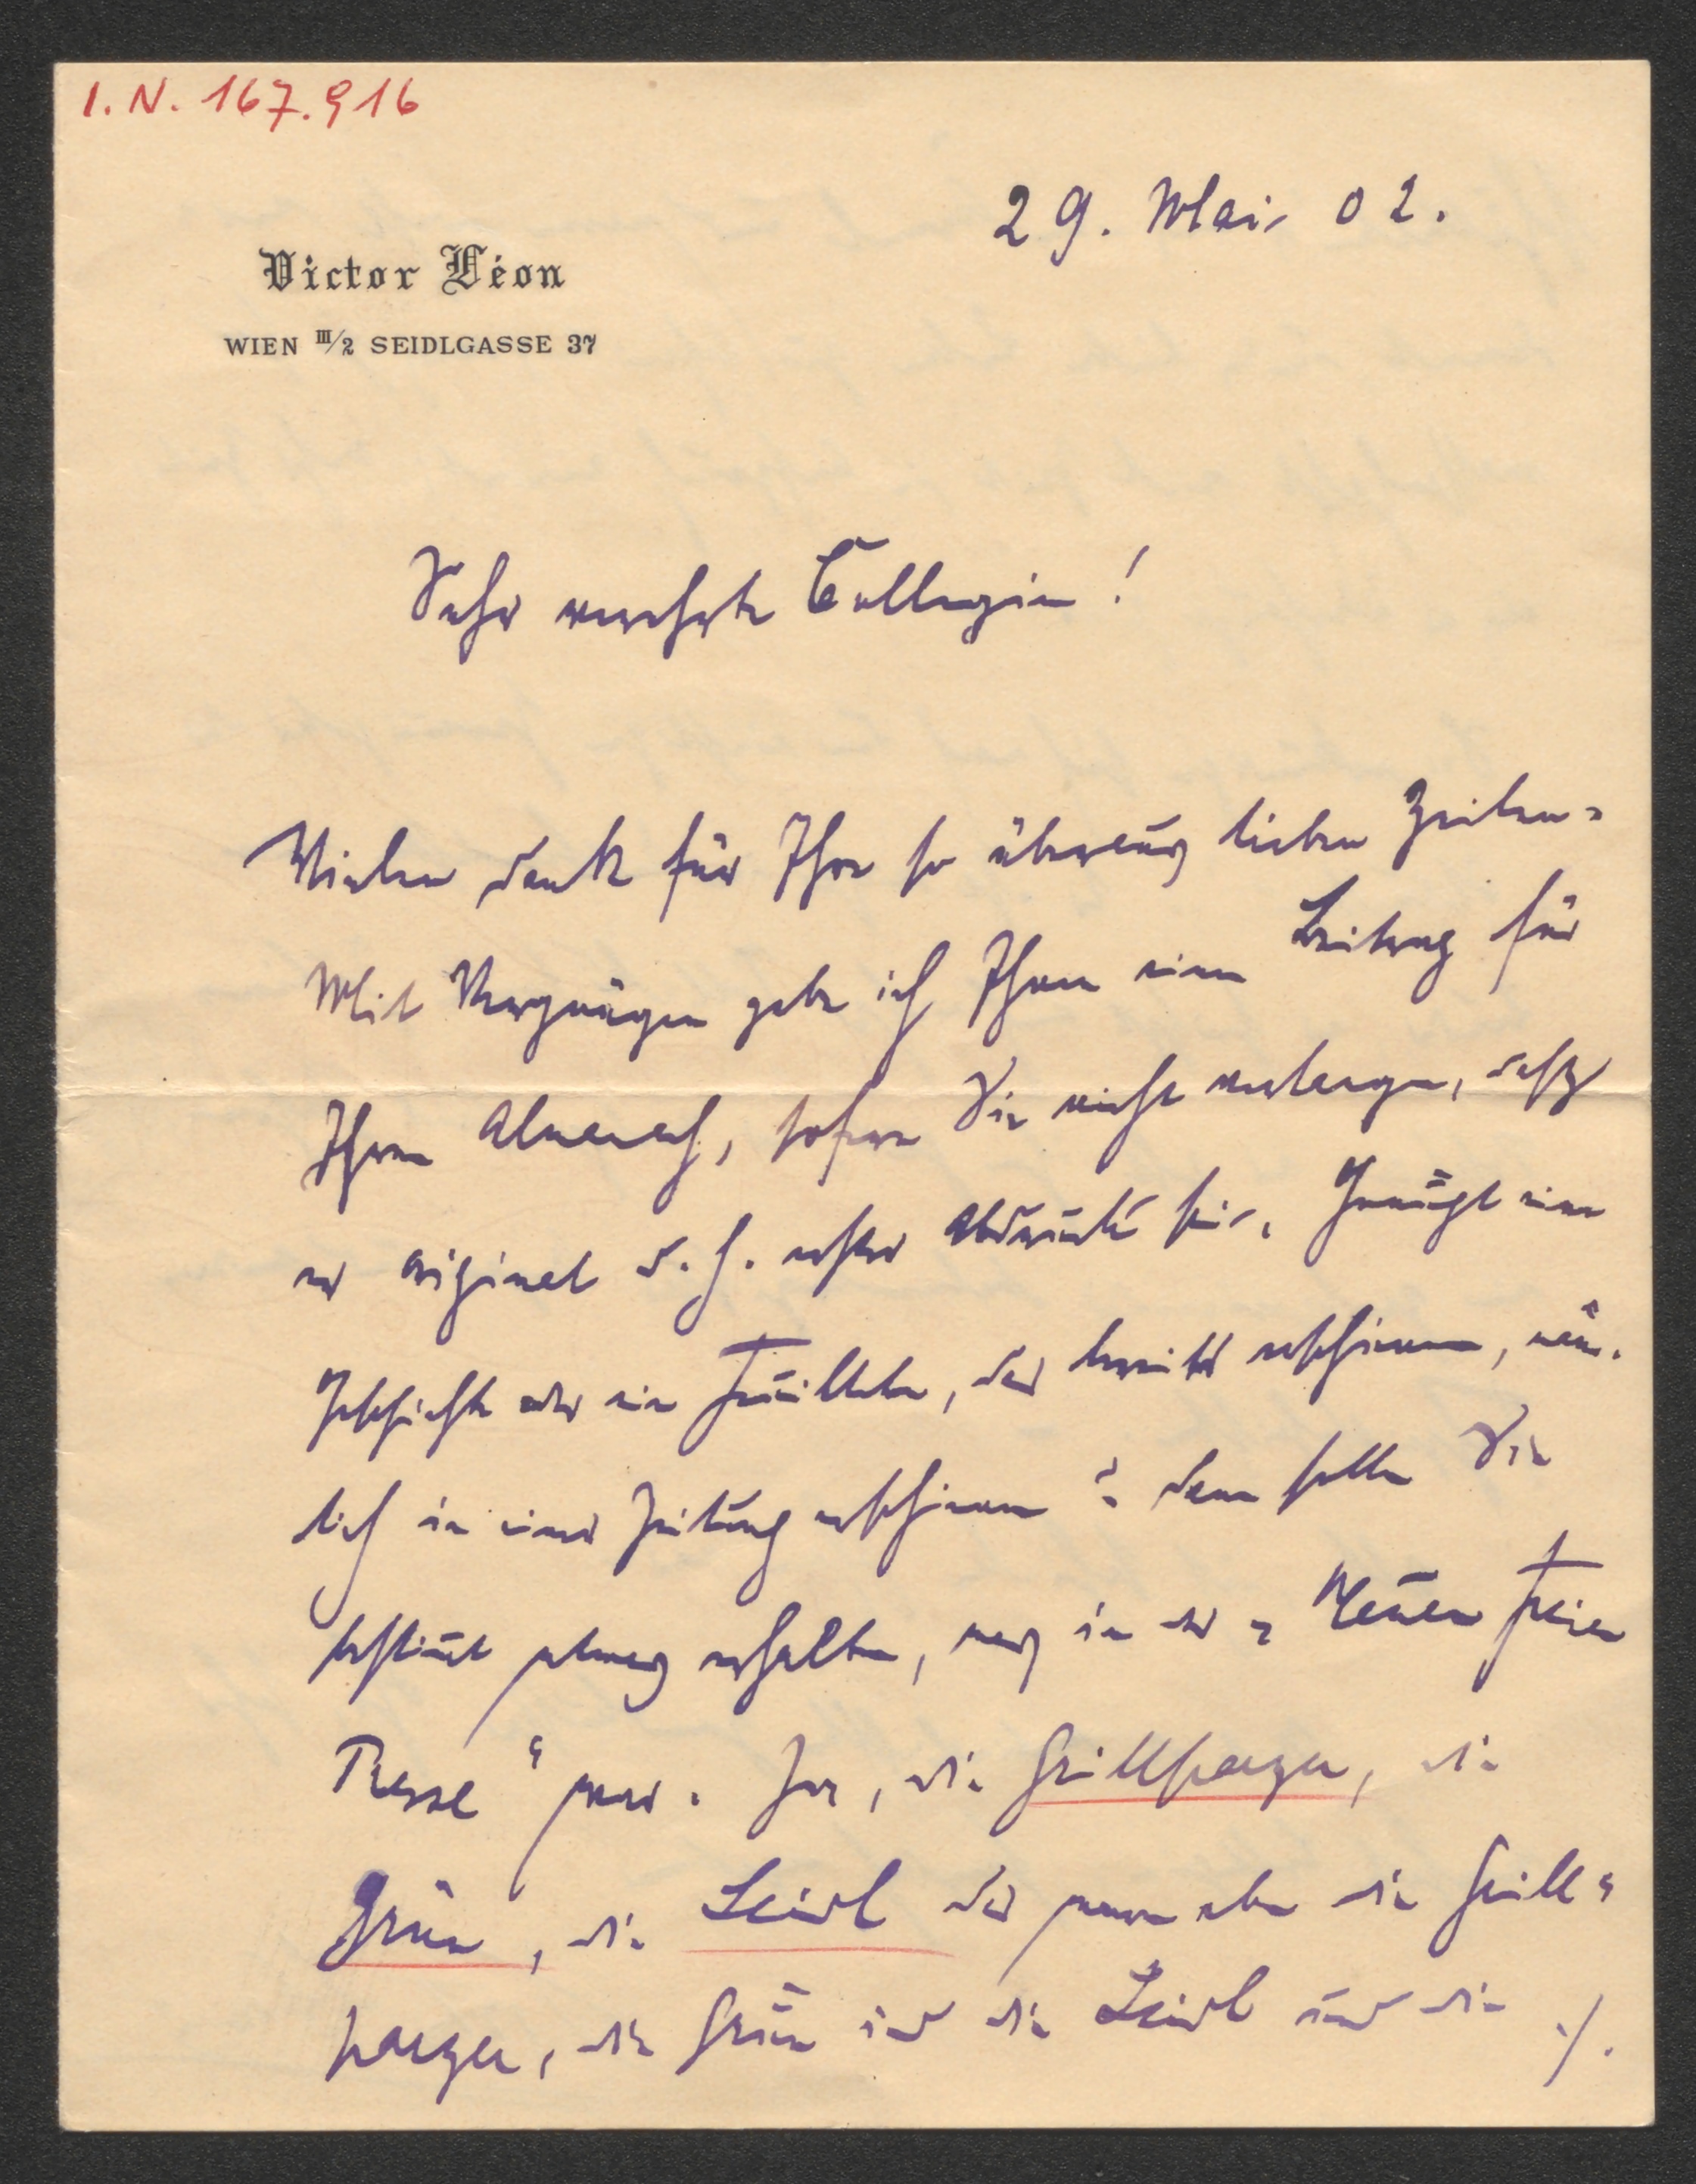 I. N. 167.916
29. Mai 02.
Victor Léon
WIEN III/2 SEIDLGASSE 37
Sehr verehrte Collegin!
Vielen Dank für Ihre so überaus lieben Zeilen.
Mit Vergnügen gebe ich Ihnen einen Beitrag für
Ihren Almanach, sofern Sie nicht verlangen, daß
er original d. h. erster Abdruck sei. Genügt eine
Geschichte oder ein Feuilleton, das bereits erschienen, näm-
lich in einer Zeitung erschienen? dann sollen Sie
bestimt etwas erhalten, was in der „Neuen Freien
Presse" war. Ja, die Grillparzer, die
Grün, die Seidl das waren eben die Grill-
parzer, die Grün und die Seidl und die ./.